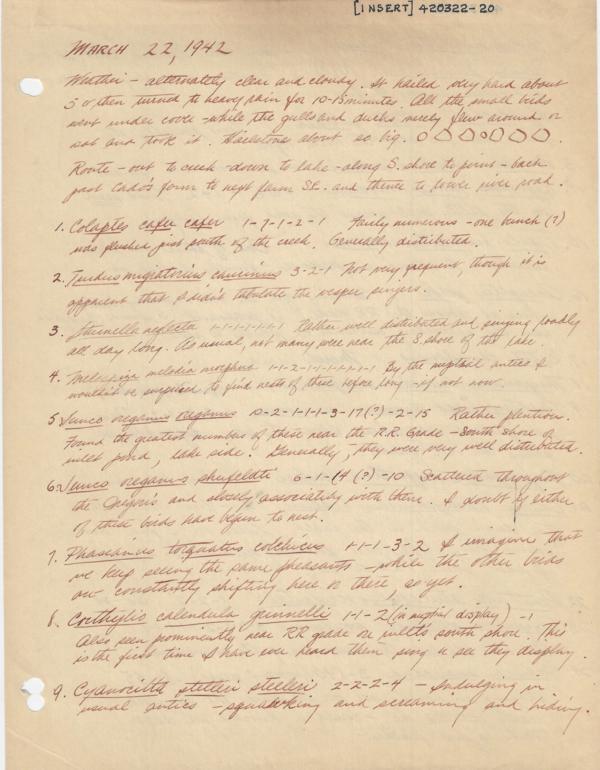 [INSERT] 420322-20
MARCH 22, 1942
Weather - alternately clear and cloudy. It hailed very hard about
5 or then turned to heavy rain for 10-15 minutes. All the small birds
went under cover - while the gulls and ducks merely flew around or
sat and took it. Hailstones about so big.
Route - out to creek - down to lake - along S. shore to - back
past farm to next farm SE. and thence to lower river road.
1. Colaptes cafer cafer 1-7-1-2-1 Fairly numerous - one bunch (7)
was flushed just south of the creek. Generally distributed.
2. Turdus migratorius caurinus 3-2-1 Not very frequent, though it is
apparent that I didn't tabulate the vesper singers.
3. Sturnella neglecta 1-1-1-1-1-1-1 Rather well distributed and singing loudly
all day long. As usual, not many were near the S. shore of the lake.
4. Melospiza melodia morphna 1-1-2-1-1-1-1-1-1 By the nuptial antics I
wouldn't be surprised to find nests of these before long - if not now.
5. Junco oreganus oreganus 10-2-1-1-1-3-17(?)-2-15 Rather plentious.
Found the greatest number of these near the R.R. Grade - South shore of
inlet pond, lake side. Generally, they were very well distributed.
6. Junco oreganus shufeldti 6-1-14(?)-10 Scattered throughout
the Oregons and closely associating with them. I doubt if either
of these birds have begun to nest.
7. Phasianus torquatus colchicus 1-1-1-3-2 I imagine that
we keep seeing the same pheasants - while the other birds
are constantly shifting here or there, so yet.
8. Corthylio calendula grinnelli 1-1-2 (in nuptial display) -1
Also seen prominently near RR grade on south shore. This
is the first time I have ever heard them sing or see they display.
9. Cyanocitta stelleri stelleri 2-2-2-4 - Indulging in
usual antics - squawking and screaming and hiding.